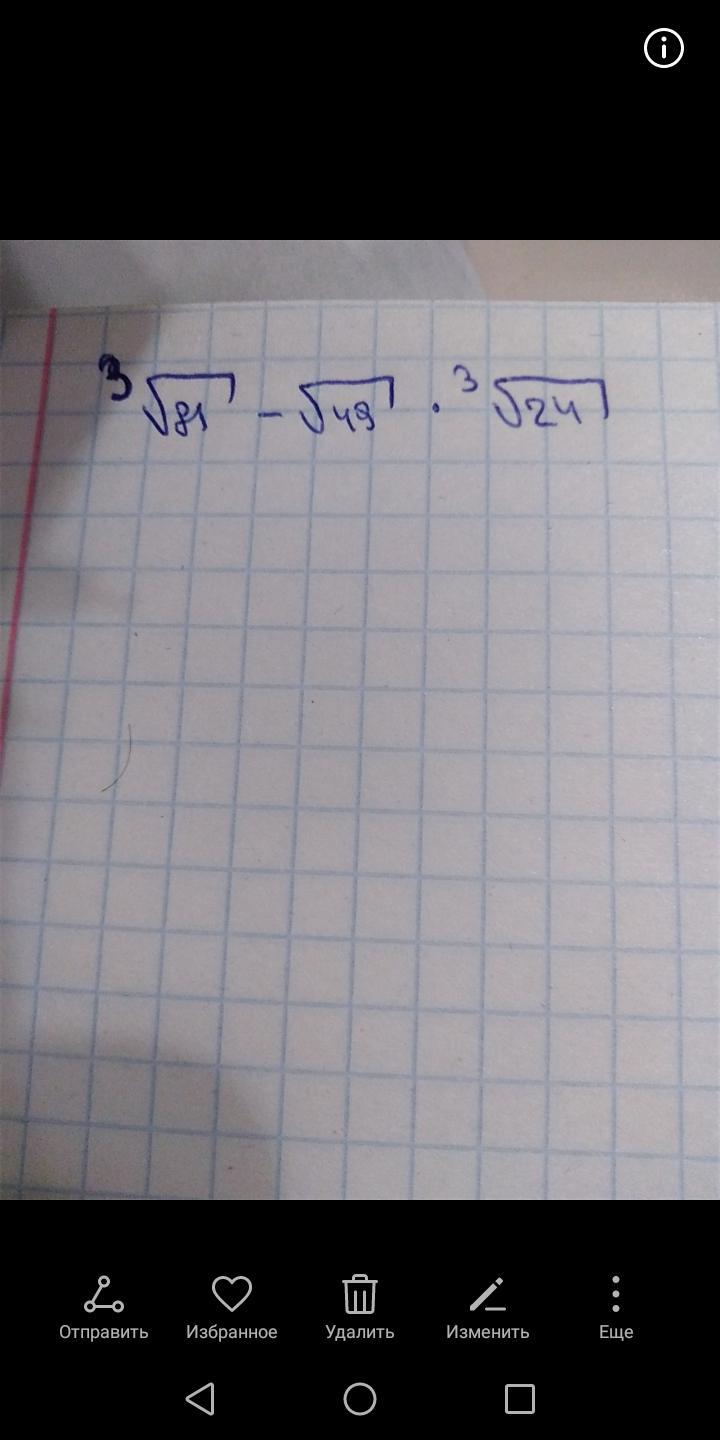 ³√81 - √49 · ³√24
Отправить Избранное Удалить Изменить Еще